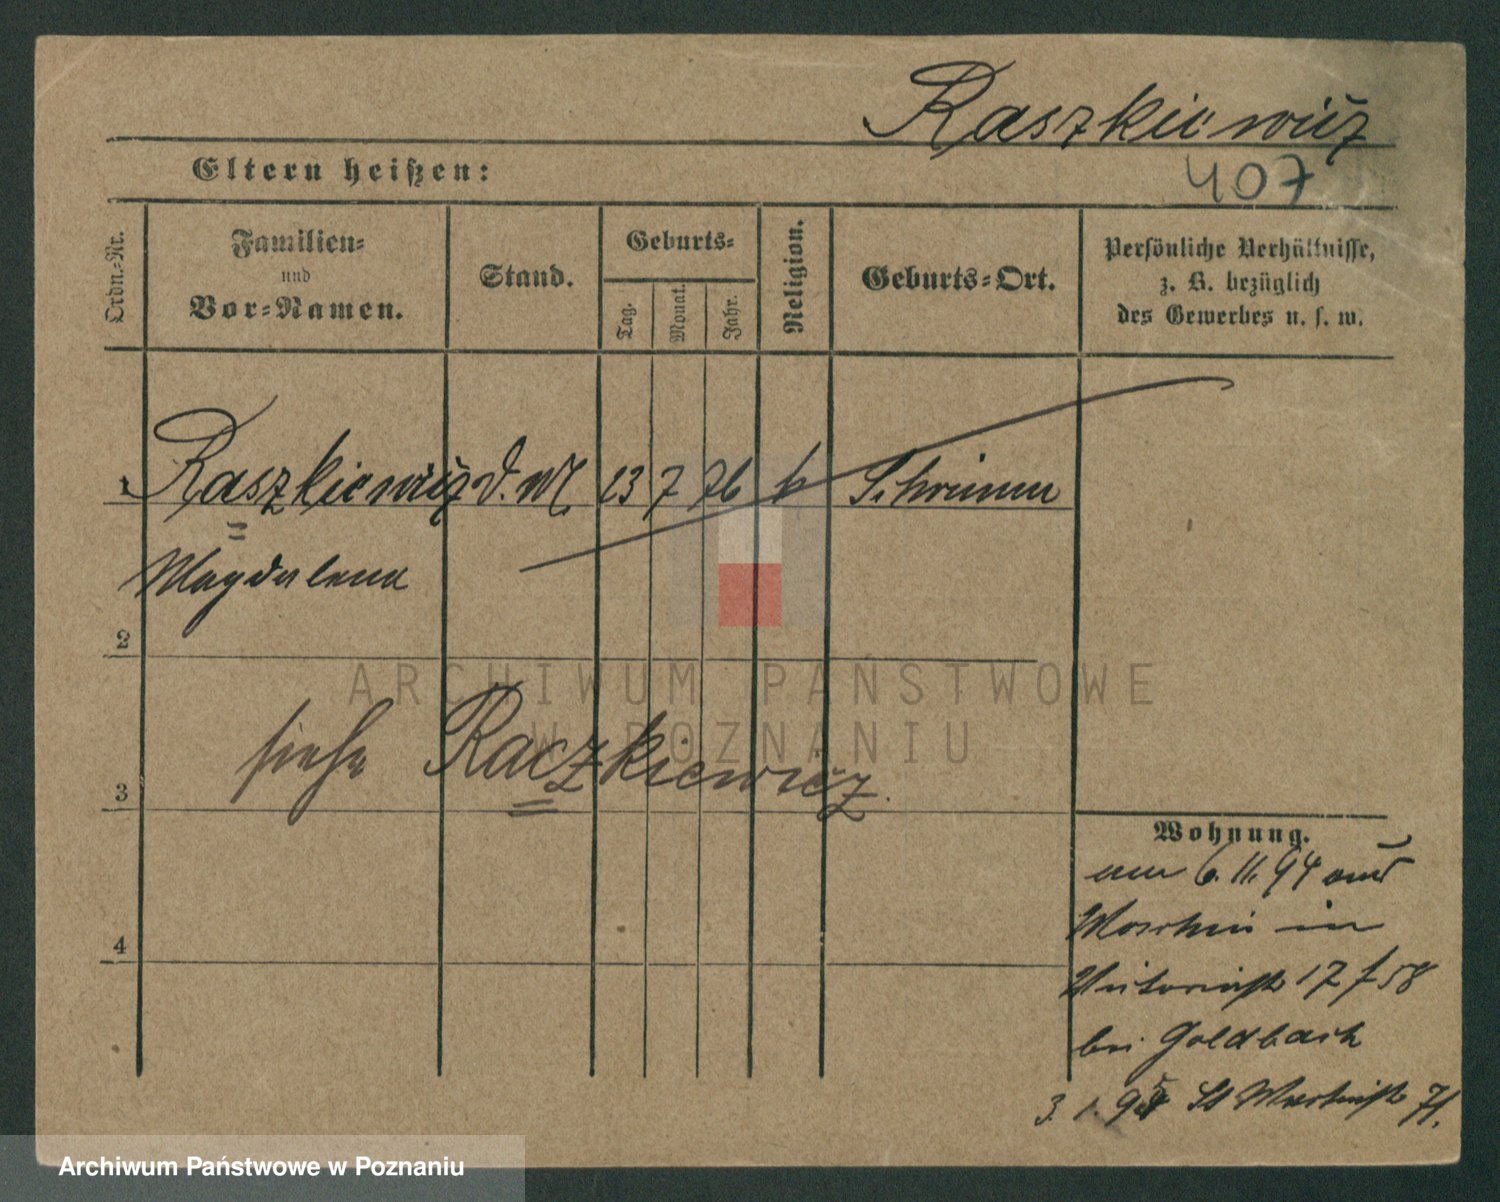 Raszkiewicz
407
Eltern heißen:
Ordn.-Nr.
Familien-
und
Vor-Namen.
Stand.
Geburts-
Tag.
Monat.
Jahr.
Religion.
Geburts-Ort.
Persönliche Verhältnisse,
z. B. bezüglich
des Gewerbes u. s. w.
1 Raszkiewicz d. M. 13 7 76 k Schrimm
Magdalena
2
ARCHIWUM PAŃSTWOWE
W POZNANIU
siehe Raczkiewicz.
3
Wohnung.
am 6. 11. 94 aus
Moschin in
Victoriastr 17 f 58
bei Goldbach
4
3. 1. 95 St Martinstr 71.
Archiwum Państwowe w Poznaniu